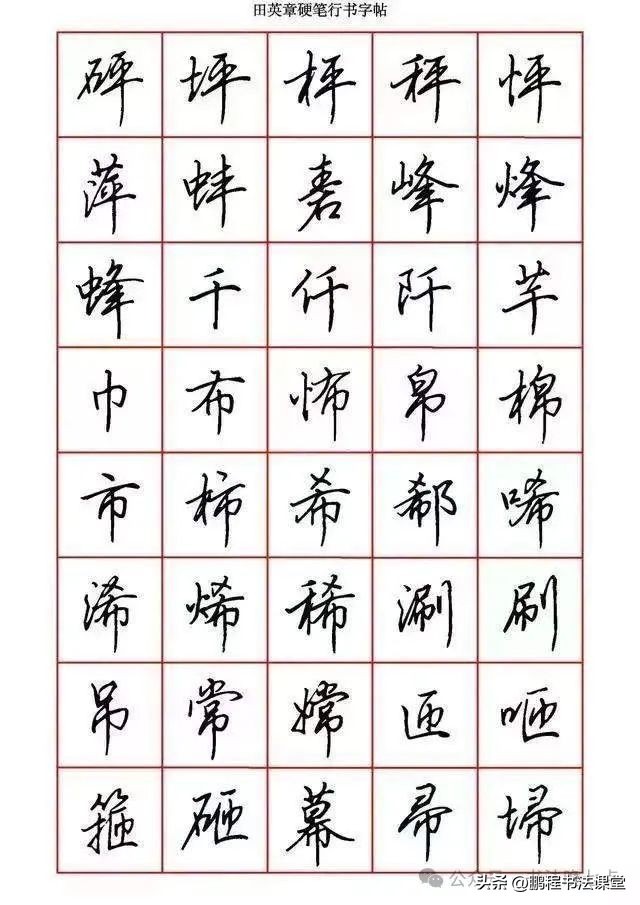 田英章硬笔行书字帖
砰 坪 枰 秤 怦
萍 蚌 砉 峰 烽
蜂 千 仟 阡 芊
巾 布 怖 帛 棉
市 柿 希 郗 唏
浠 烯 稀 涮 刷
吊 常 嫦 匝 咂
箍 砸 幕 帚 埽
头条@鹏程书法课堂